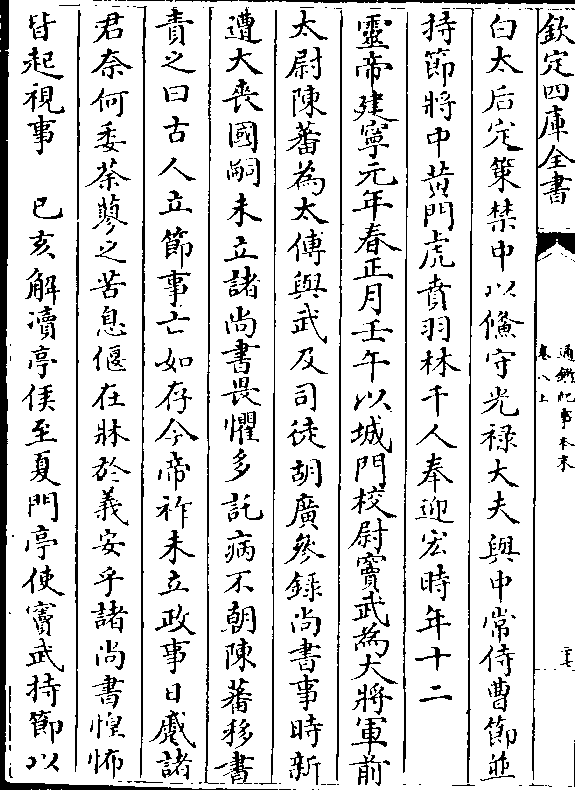 欽定四庫全書
通鑑紀事本末
卷八上
白太后定策禁中以儵守光祿大夫與中常侍曹節並
持節將中黄門虎賁羽林千人奉迎宏時年十二
靈帝建寧元年春正月壬午以城門校尉竇武為大將軍前
太尉陳蕃為太傅與武及司徒胡廣參録尚書事時新
遭大喪國嗣未立諸尚書畏懼多託病不朝陳蕃移書
責之曰古人立節事亡如存今帝祚未立政事日蹙諸
君奈何委荼蓼之苦息偃在牀於義安乎諸尚書惶怖
皆起視事　己亥解瀆亭侯至夏門亭使竇武持節以